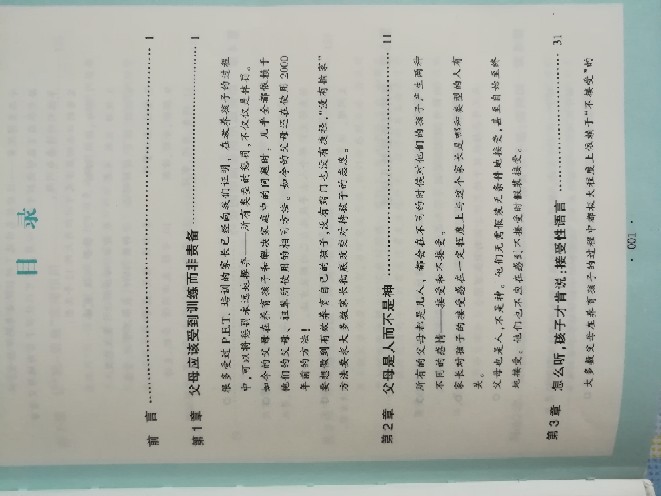 目 录
前 言 1
第1章 父母应该受到训练而非责备 1
很多受过P.E.T.培训的家长已经向我们证明，在教养孩子的过程
中，可以将惩罚永远地摒弃——所有类型的惩罚，不仅仅是体罚。
如今的父母在养育孩子和解决家庭中的问题时，几乎全部依赖于
他们的父母、祖辈所使用的相同方法。如今的父母还在使用2000
年前的方法！
要想做到有效养育自己的孩子，没有窍门也没有捷径，“没有搬家”
方法要求大多数家长彻底改变对待孩子的态度。
第2章 父母是人而不是神 11
所有的父母都是凡人，都会在不同的时候对他们的孩子产生两种
不同的感情——接受和不接受。
家长对孩子的接受感在一定程度上与这个家长是哪种类型的人有
关。
父母也是人，不是神。他们无需假装无条件地接受，甚至自始至终
地接受。他们也不必在感到不接受时假装接受。
第3章 怎么听，孩子才肯说：接受性语言 31
大多数父母在养育孩子的过程中都极大程度上依赖于“不接受”的
· 001 ·